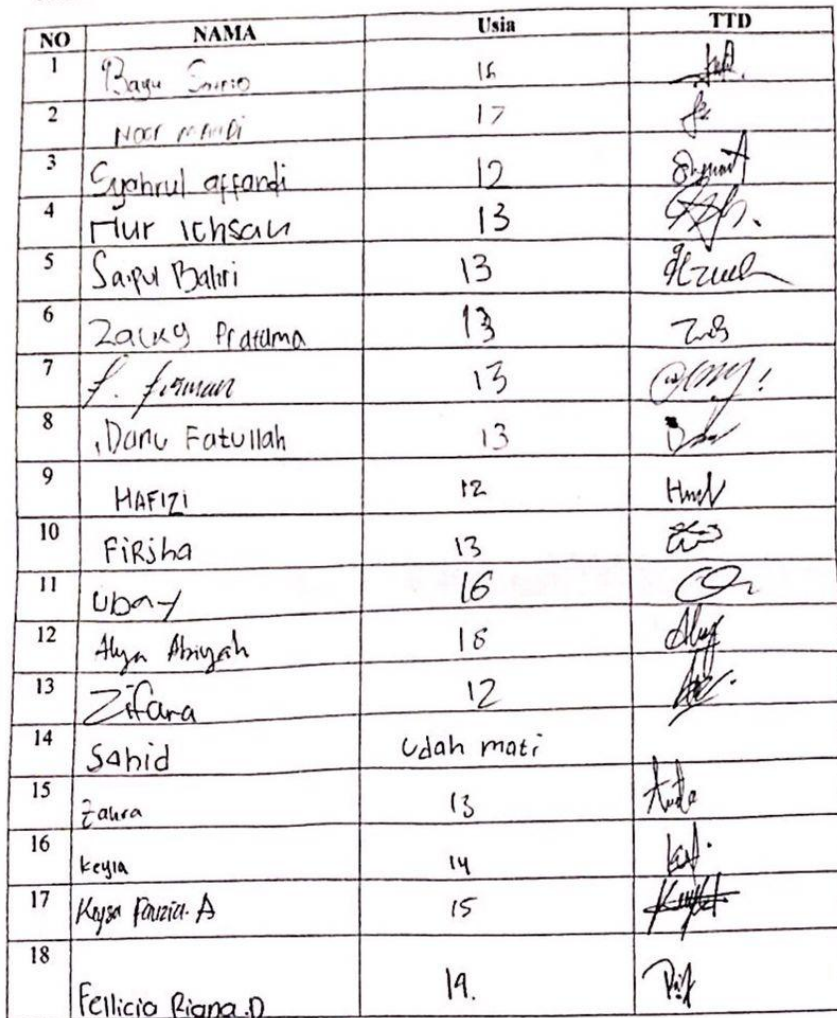 NO NAMA Usia TTD
1 Bagu 16
2 Noor 17
3 Syahrul affandi 12
4 Nur Ichsan 13
5 Saipul Bahri 13
6 Zacky Pratama 13
7 F. Firman 13
8 Danu Fatullah 13
9 HAFIZI 12
10 FiRSha 13
11 Ubay 16
12 Alya Abiyah 18
13 Zifara 12
14 Sahid Udah mati
15 Zahra 13
16 Keyla 14
17 Keysa Fauzia. A 15
18 Fellicia Riana.D 19.